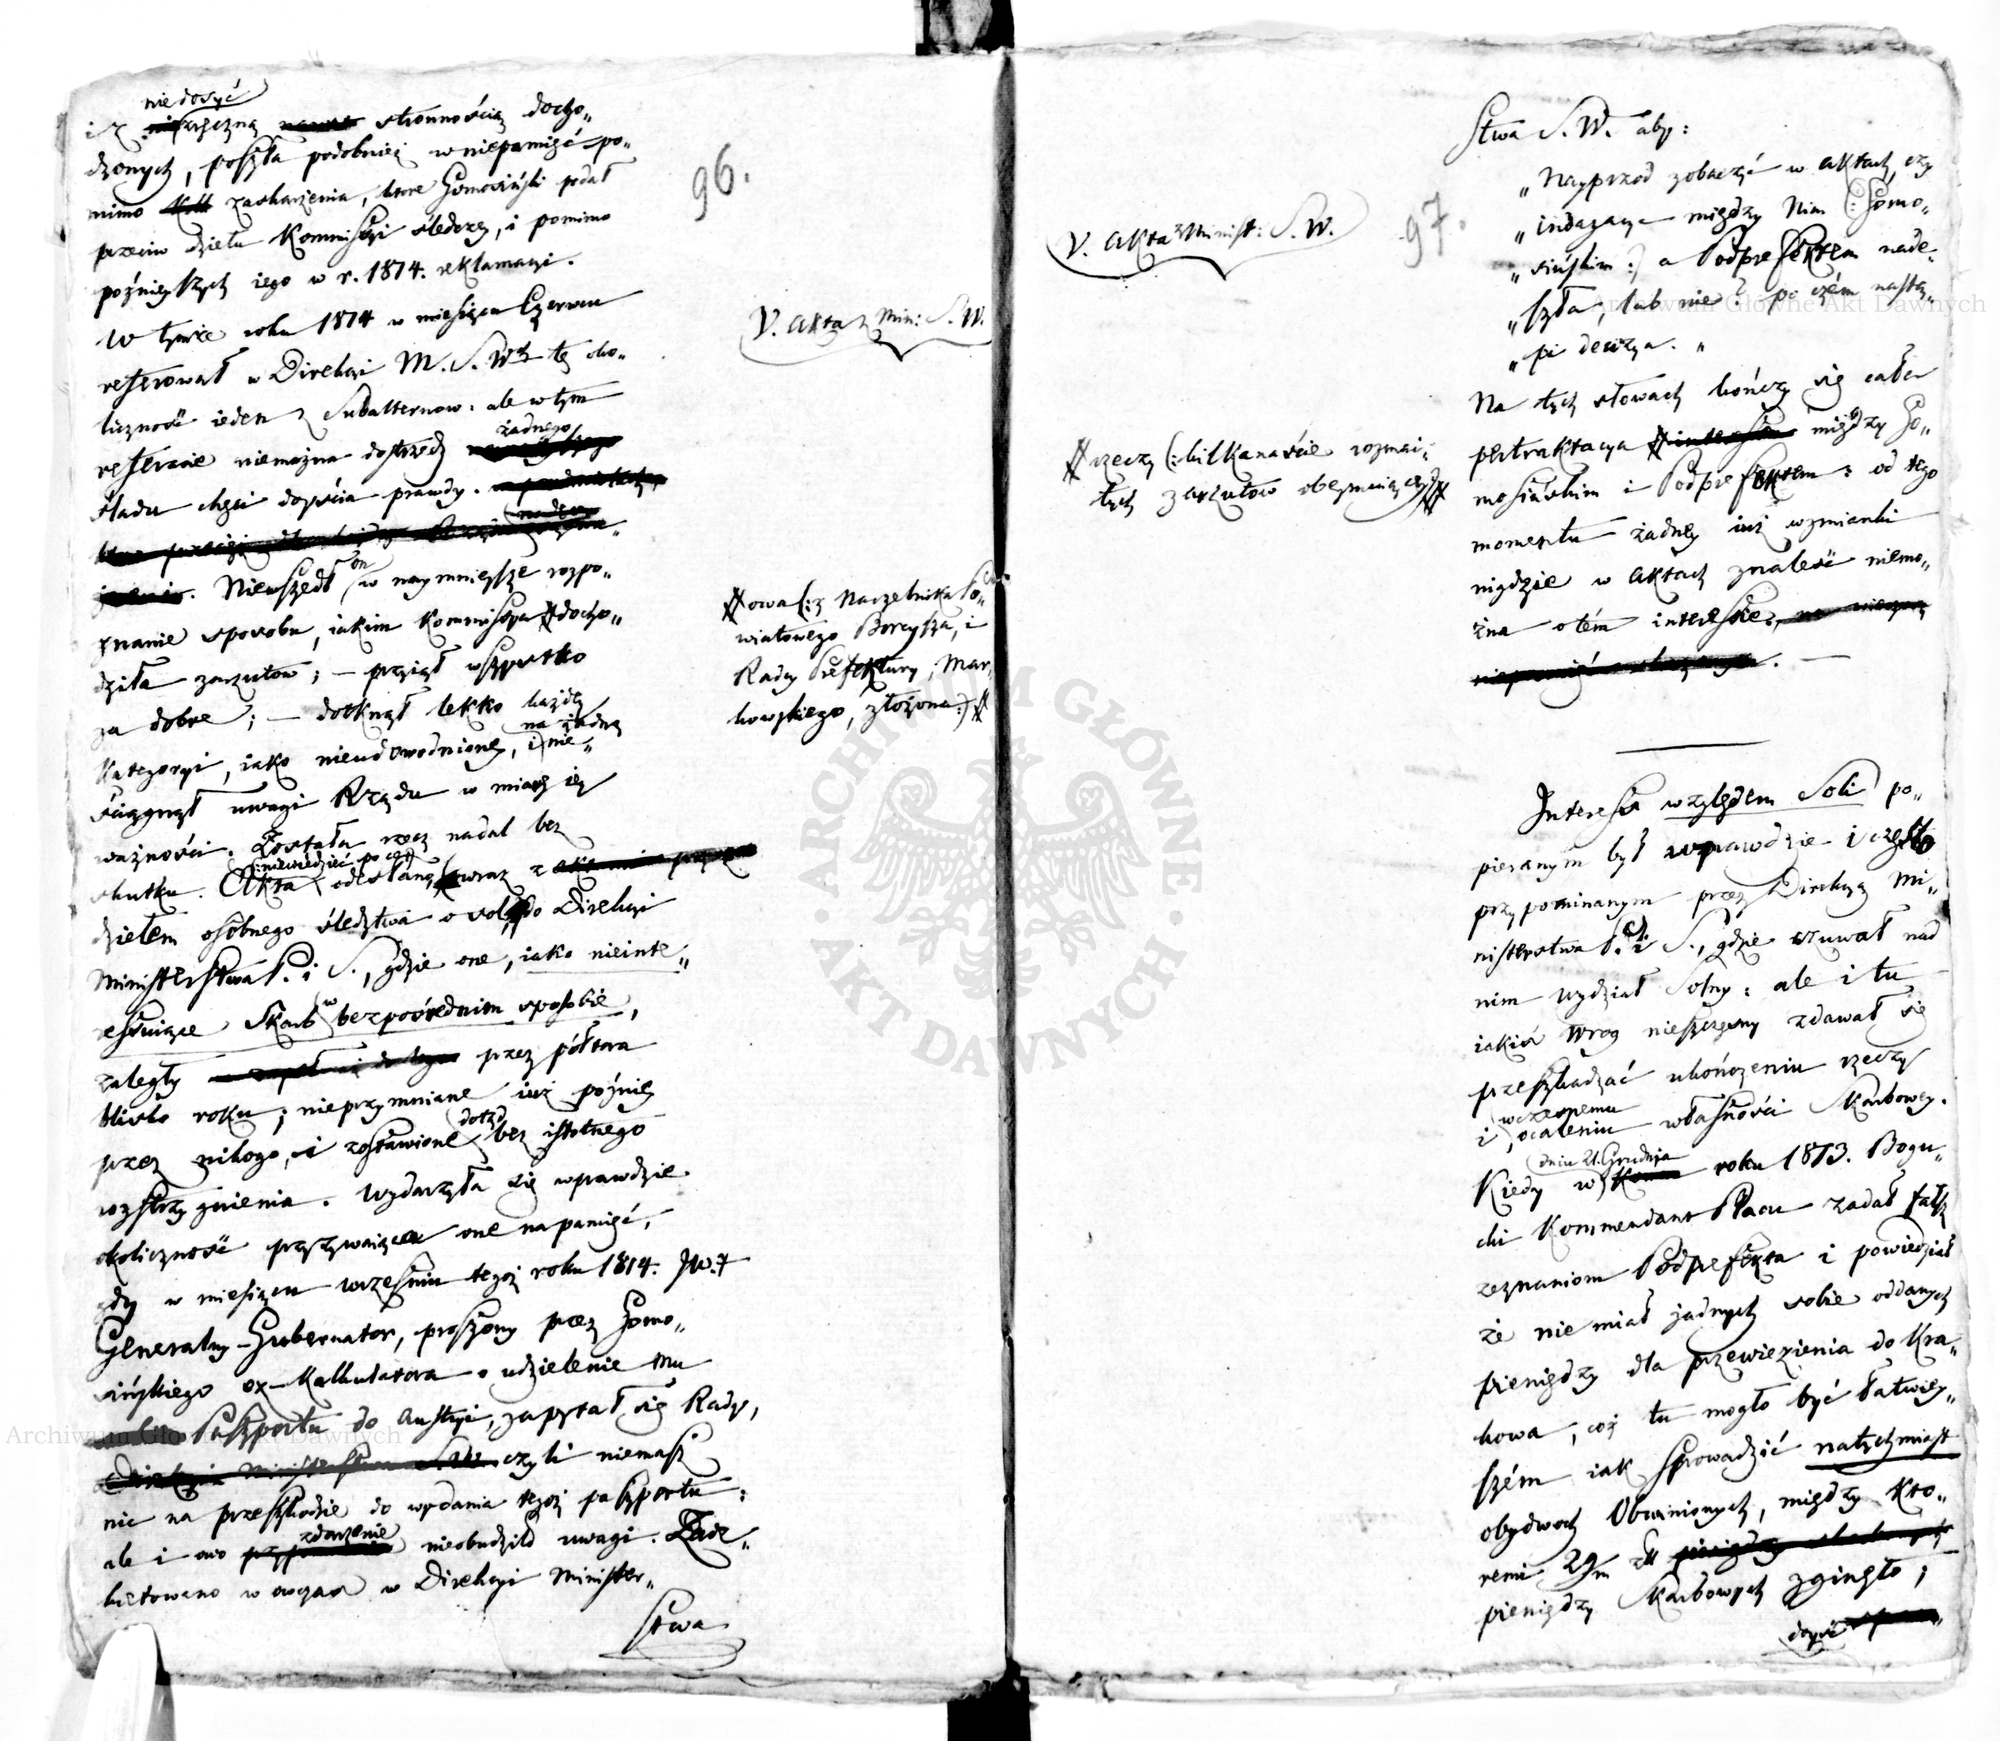 niedosyć
i z zręczną stronnością docho„
dzonych, poszła podobnież w niepamięć po„
mimo zaskarżenia, które Gomosiński podał
przeciw dziełu Kommissyi śledczey, i pomimo
poźnieyszych iego w r. 1814. reklamacyi.
W tymże roku 1814 w miesiącu Czerwcu
referował w Direkcyi M. S. W. tę oko„
liczność ieden z Subalternow: ale w tym
referacie niemożna dostrzedz żadnego
śladu chęci doyścia prawdy.
Niewszedł on w naymnieysze rozpo„
znanie sposobu, iakim Kommissya # docho„
dziła zarzutow; — przyiął wszystko
za dobre; — dotknął lekko każdey
Kategoryi, iako nieudowodnioney, i na żadną nie„
ściągnął uwagi Rządu w miarę iey
ważności. Została rzecz nadal bez
skutku. Akta (: niewiedzieć po co :) odesłano, wraz z
dziełem osóbnego śledztwa o sol, do Direkcyi
Ministerstwa P. i S., gdzie one, iako nieinte„
ressuiące Skarb w bezpośrednim sposobie,
zaległy przez półtora
blisko roku; nieprzymniane iuż poźniey
przez nikogo, i zostawione dotąd bez istotnego
rozstrzygnienia. Wydarzyła się wprawdzie
okoliczność przyzywaiąca one na pamięć,
gdy w miesiącu wrześniu tegoż roku 1814. JW.
Generalny-Gubernator, proszony przez Gomo„
sińskiego ex-Kalkulatora o udzielenie mu
Paszportu do Austryi, zapytał się Rady,
czyli niemasz
nic na przeszkodzie do wydania tegoż paszportu:
ale i owo zdarzenie nieobudziło uwagi. Zade„
kretowano wówczas w Direkcyi Minister„
stwa
96.
V. Akta z Min: S. W.
# owa (: z Naczelnika Po„
wiatowego Boreysza, i
Radcy Prefektury, Mar„
kowskiego, złożona:) #
V. Akta z Minist: S. W.
97.
# rzeczy (: kilkanaście rozmai„
tych zarzutów obeymuiącey :) #
Stwa S. W. aby:
„Nayprzod zobaczyć w aktach, czy
„indagacya między Nim (: Gomo„
„sińskim :) a Podprefektem nade„
„szła, lub nie? po czém nastą„
„pi decyzya.„
Na tych słowach kończy się cała
pertraktacya # między Go„
mosińskim i Podprefektem: od tego
momentu żadney iuż wzmianki
nigdzie w aktach znaleść niemo„
żna o tém interessie.
—
Interess względem Soli po„
pieranym był wprawdzie i często
przypominanym przez Direkcyą Mi„
nisterstwa P. i S., gdzie czuwał nad
nim Wydział Solny: ale i tu
iakiś wrog nieszczęsny zdawał się
przeszkadzać ukończeniu rzeczy
i wczesnemu ocaleniu własności Skarbowey.
Kiedy w dniu 21. Grudnia roku 1813. Bogu„
cki Kommendant Placu zadał fałsz
zeznaniom Podprefekta i powiedział
że nie miał żadnych sobie oddanych
pieniędzy dla przewiezienia do Kra„
kowa, coż tu mogło być łatwiey„
szém iak sprowadzić natychmiast
obydwoch Obwinionych, między kto„
remi 29/m zł
pieniędzy Skarbowych zginęło;
dosyć